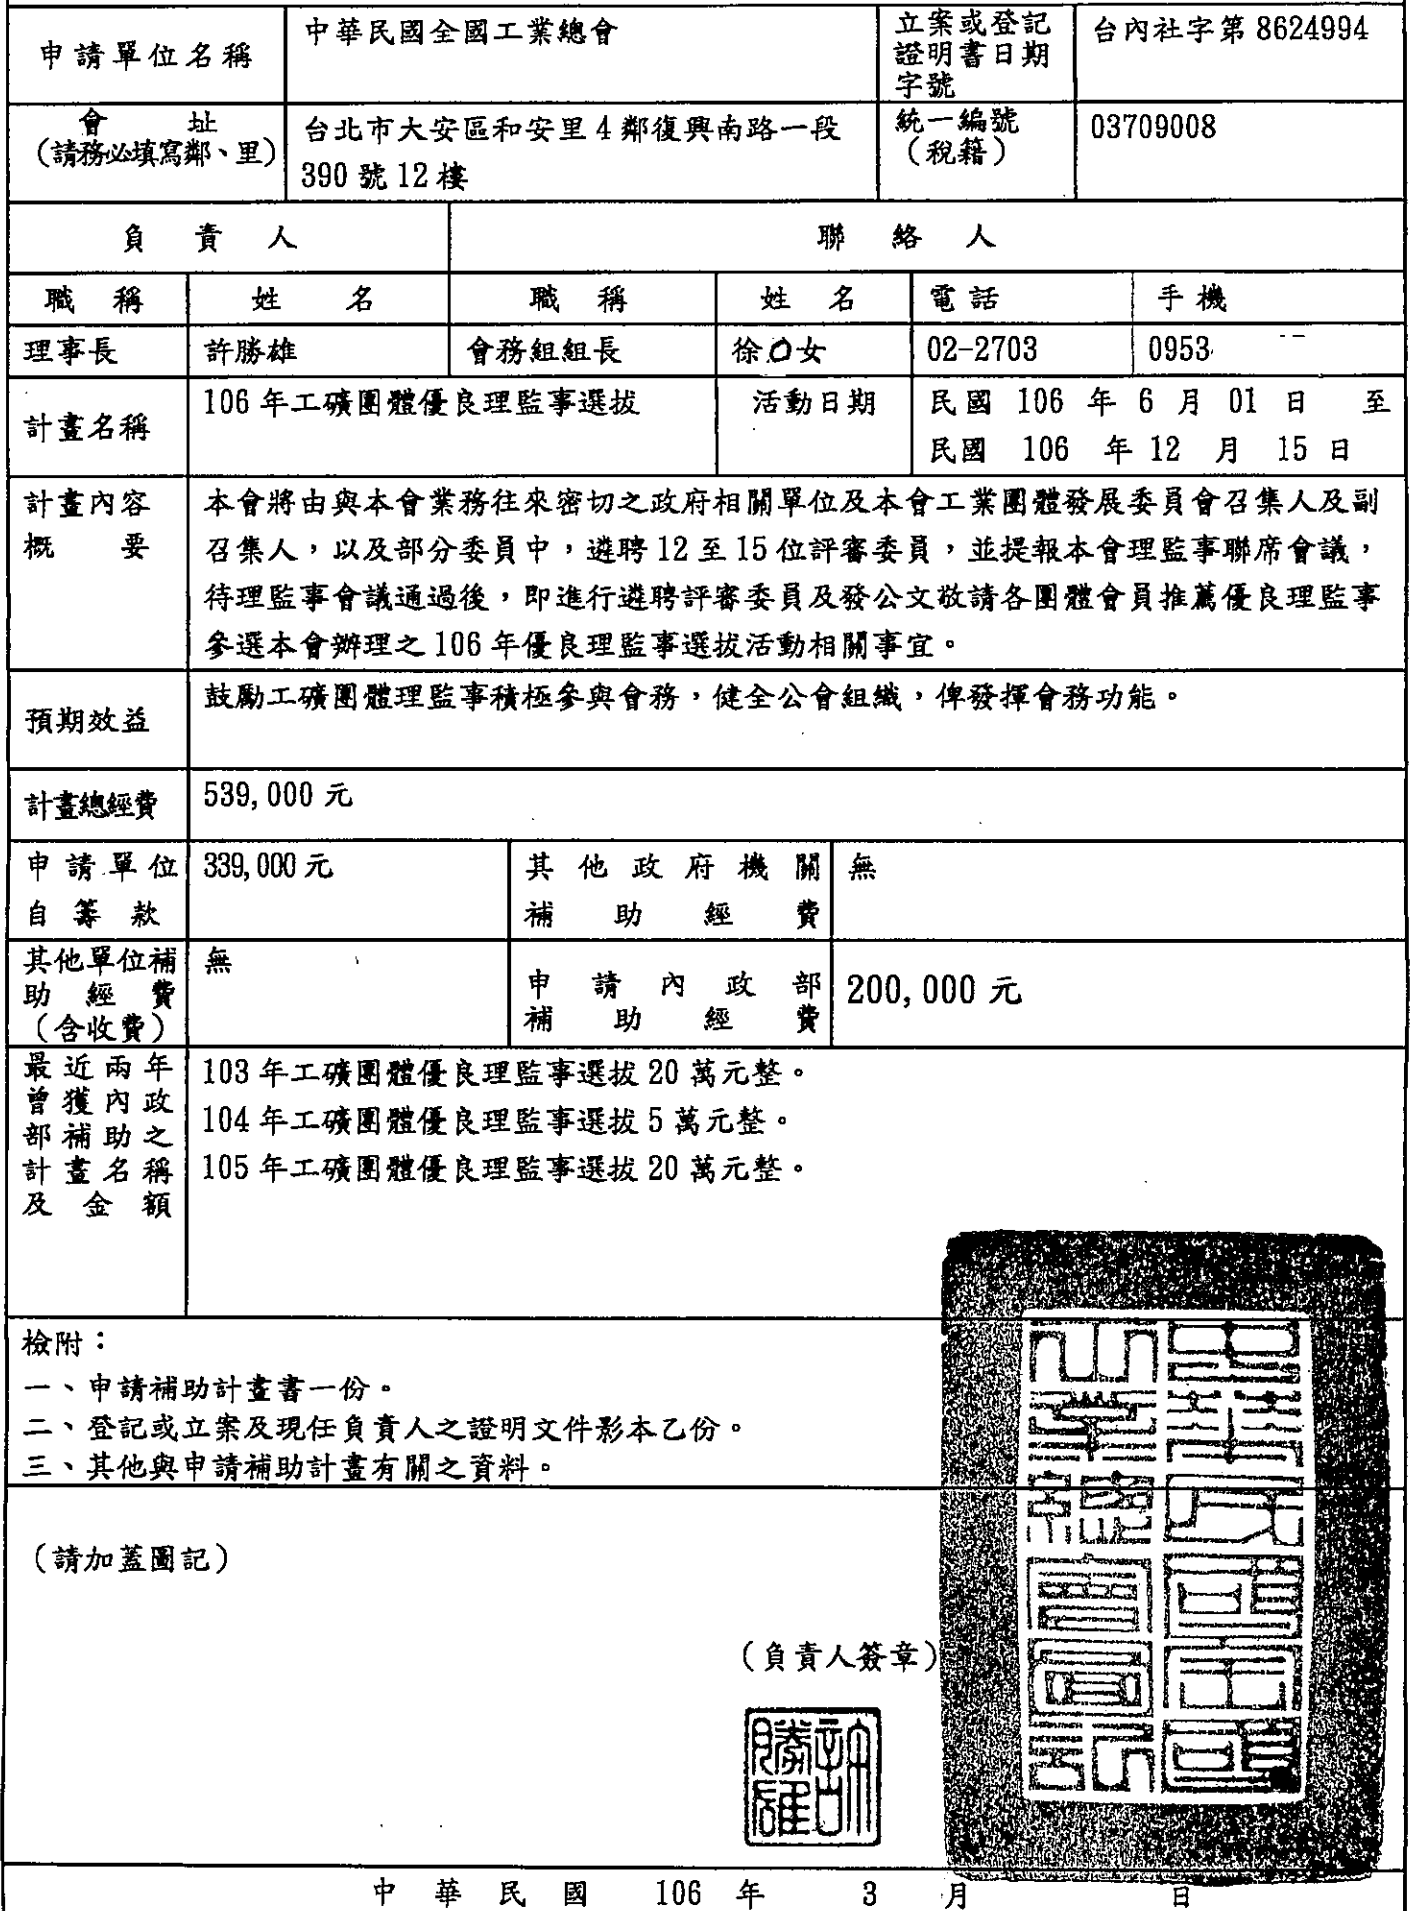 申請單位名稱
中華民國全國工業總會
立案或登記
證明書日期
字號
台內社字第 8624994
會址
(請務必填寫鄰、里)
台北市大安區和安里 4 鄰復興南路一段
390 號 12 樓
統一編號
(稅籍)
03709008
負責人
聯絡人
職稱
姓名
職稱
姓名
電話
手機
理事長
許勝雄
會務組組長
徐O女
02-2703
0953
計畫名稱
106 年工礦團體優良理監事選拔
活動日期
民國 106 年 6 月 01 日 至
民國 106 年 12 月 15 日
計畫內容
概要
本會將由與本會業務往來密切之政府相關單位及本會工業團體發展委員會召集人及副
召集人,以及部分委員中,遴聘 12 至 15 位評審委員,並提報本會理監事聯席會議,
待理監事會議通過後,即進行遴聘評審委員及發公文敬請各團體會員推薦優良理監事
參選本會辦理之 106 年優良理監事選拔活動相關事宜。
預期效益
鼓勵工礦團體理監事積極參與會務,健全公會組織,俾發揮會務功能。
計畫總經費
539,000 元
申請單位
自籌款
339,000 元
其他政府機關
補助經費
無
其他單位補
助經費
(含收費)
無
申請內政部
補助經費
200,000 元
最近兩年
曾獲內政
部補助之
計畫名稱
及金額
103 年工礦團體優良理監事選拔 20 萬元整。
104 年工礦團體優良理監事選拔 5 萬元整。
105 年工礦團體優良理監事選拔 20 萬元整。
檢附:
一、申請補助計畫書一份。
二、登記或立案及現任負責人之證明文件影本乙份。
三、其他與申請補助計畫有關之資料。
(請加蓋圖記)
(負責人簽章)
許勝雄
中華民國 106 年 3 月 日